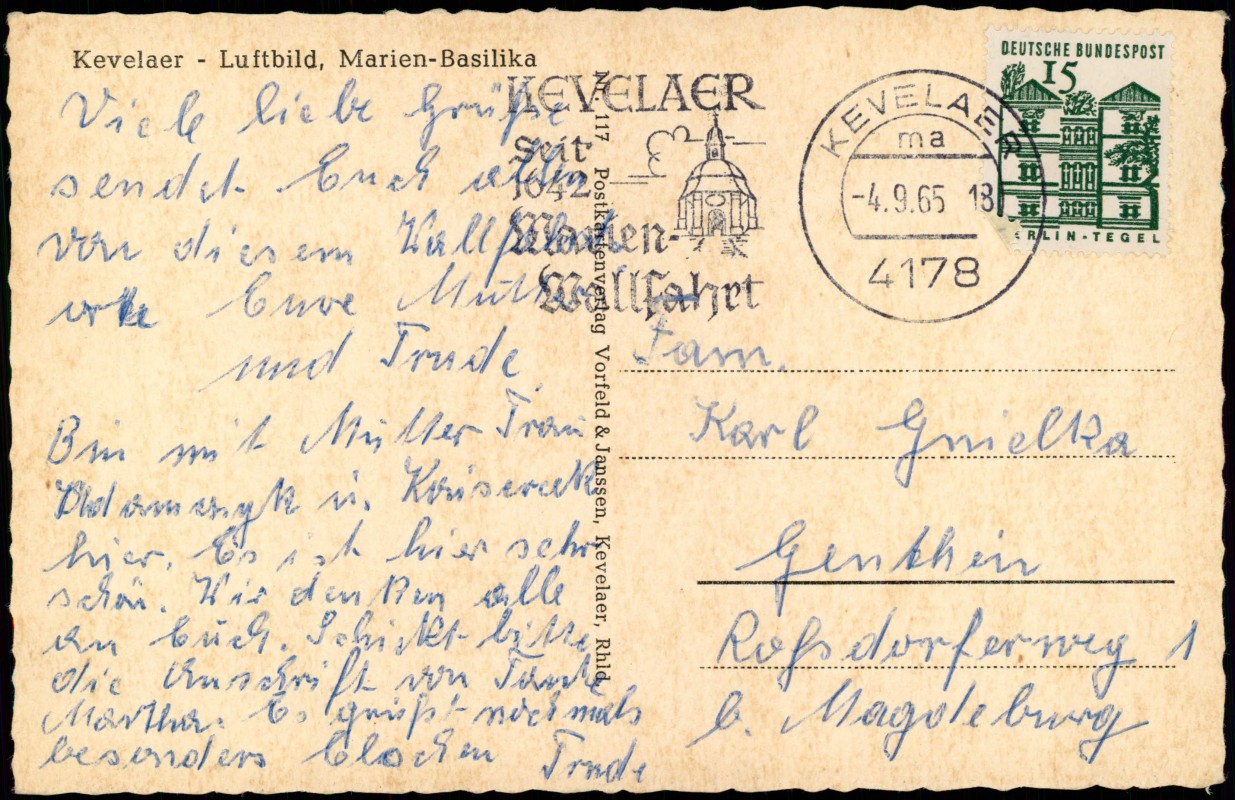 Kevelaer - Luftbild, Marien-Basilika
Viele liebe Grüße
sendet Euch allen
von diesem Wallfahrts
orte Eure Mutter
und Trude.
Bin mit Mutter Frau
Adamczyk u.
hier. Es ist hier sehr
schön. Wir denken alle
an Euch. Schickt bitte
die Anschrift von Tante
Martha. Es grüßt nochmals
besonders
Trude
Nr. 117 Postkartenverlag Vorfeld & Janssen, Kevelaer, Rhld.
KEVELAER
Seit
1642
Marien-
Wallfahrt
KEVELAER
ma
-4.9.65 18
4178
DEUTSCHE BUNDESPOST
15
BERLIN-TEGEL
Fam.
Karl Gnielka
Genthin
Roßdorferweg 1
b. Magdeburg